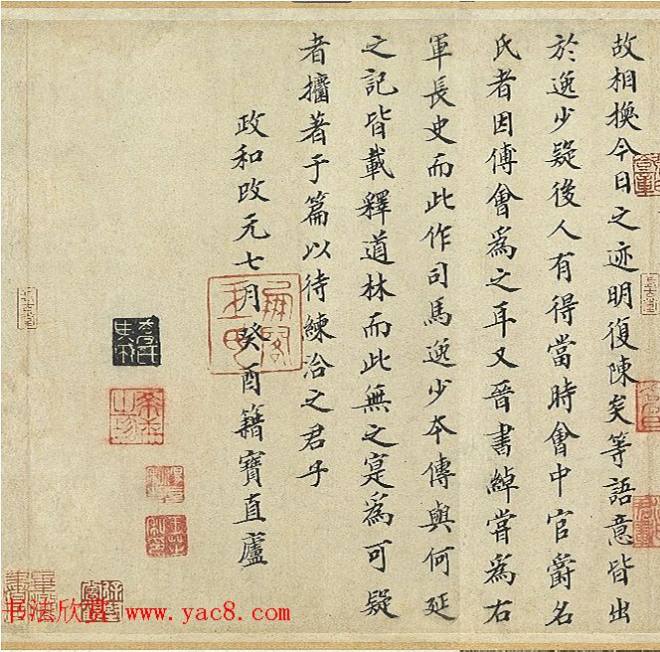 故相換今日之迹明復陳矣等語意皆出
於逸少疑後人有得當時會中官爵名
氏者因傅會爲之耳又晉書綽嘗爲右
軍長史而此作司馬逸少夲傳與何延
之記皆載釋道林而此無之寔爲可疑
者著于篇以待練洽之君子
政和改元七月癸酉籍寶直廬
书法欣赏 www.yac8.com